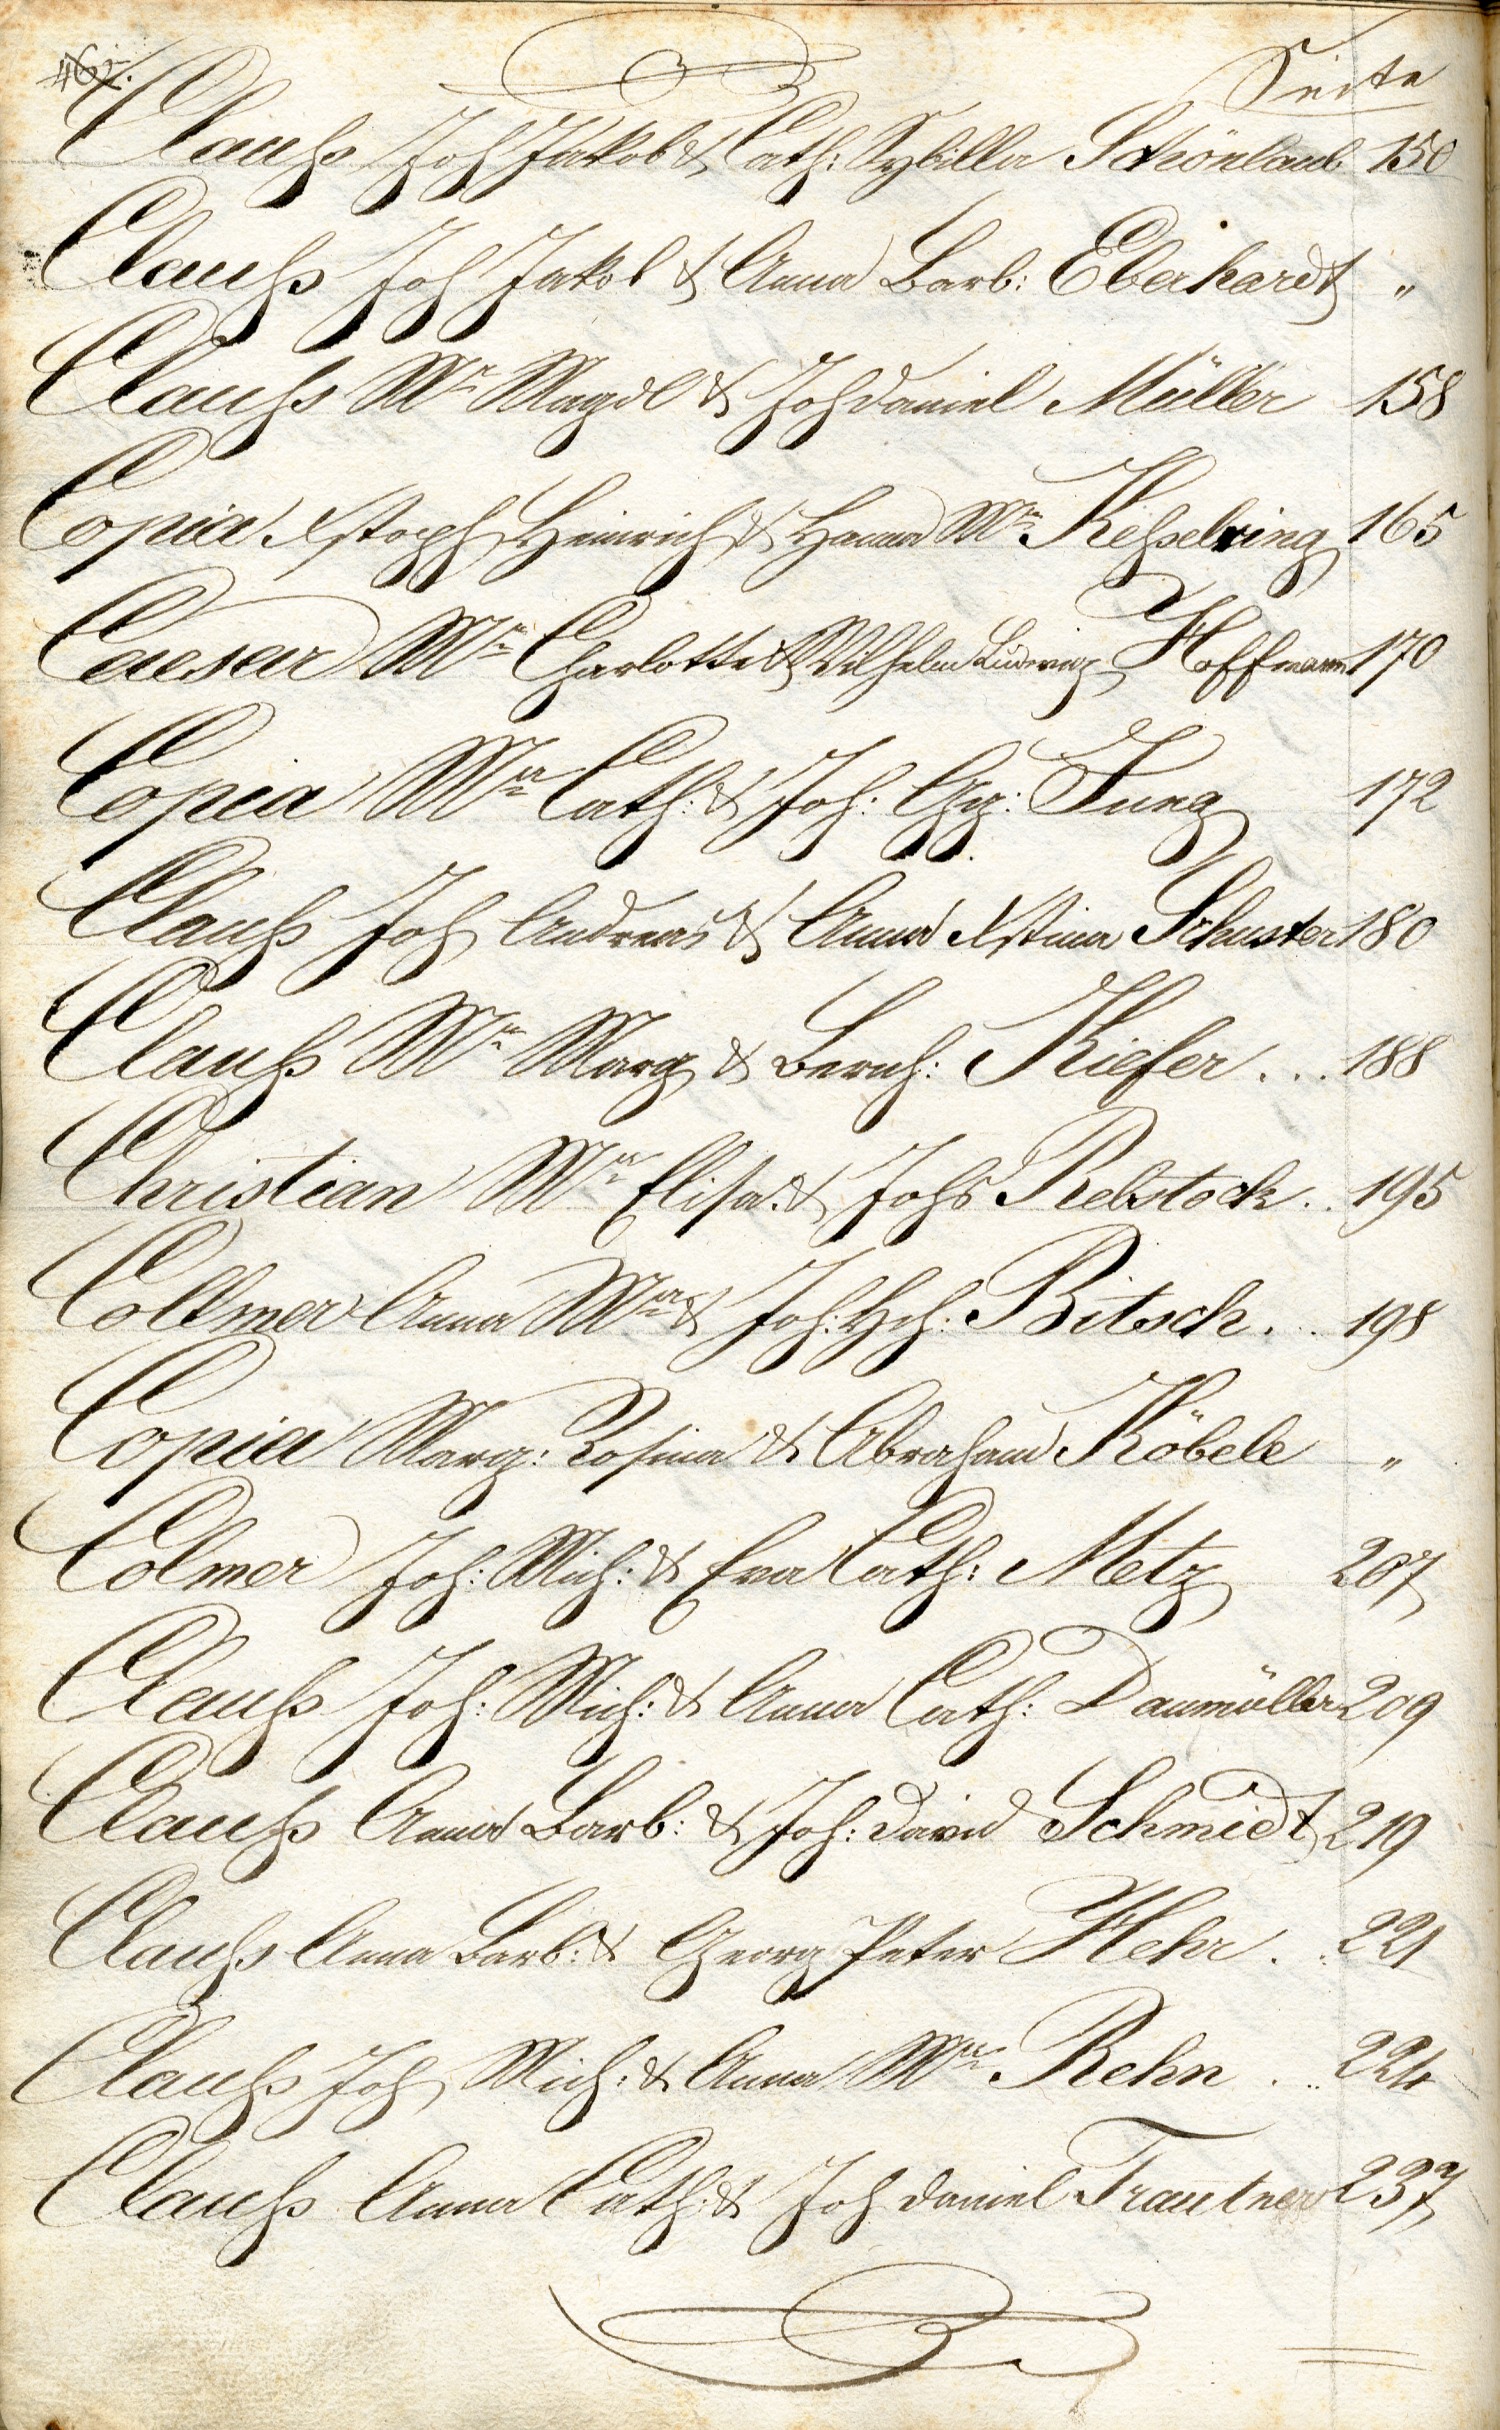 462.
Seite
Clauß Joh Jakob & Cath: Sybilla Schönlaub 150
Clauß Joh Jakob & Anna Barb: Eberhardt "
Clauß Mª Magdl & Joh Daniel Müller 158
Copia Xstoph Heinrich & Hanna Mª Keßelring 165
Caesar Mª Charlotte & Wilhelm Ludwig Hoffmann 170
Copia Mª Cath: & Joh: Gg: Jung 172
Clauß Joh Andreas & Anna Xstina Schuster 180
Clauß Mª Marg & Bernh: Kiefer ... 188
Christian Mª Elisa: & Johs Rebstock .. 195
Collmer Anna Mª & Joh: Hch: Bitsch ... 198
Copia Marg: Rosina & Abraham Köbele "
Colmer Joh: Mich: & Eva Cath: Metz 207
Clauß Joh: Mich: & Anna Cath: Danmüller 209
Clauß Anna Barb: & Joh: David Schmidt 219
Clauß Anna Barb: & Georg Peter Hehr . .. 221
Clauß Joh Mich: & Anna Mª Rehn . .. 224
Clauß Anna Cath: & Joh Daniel Trautner 237